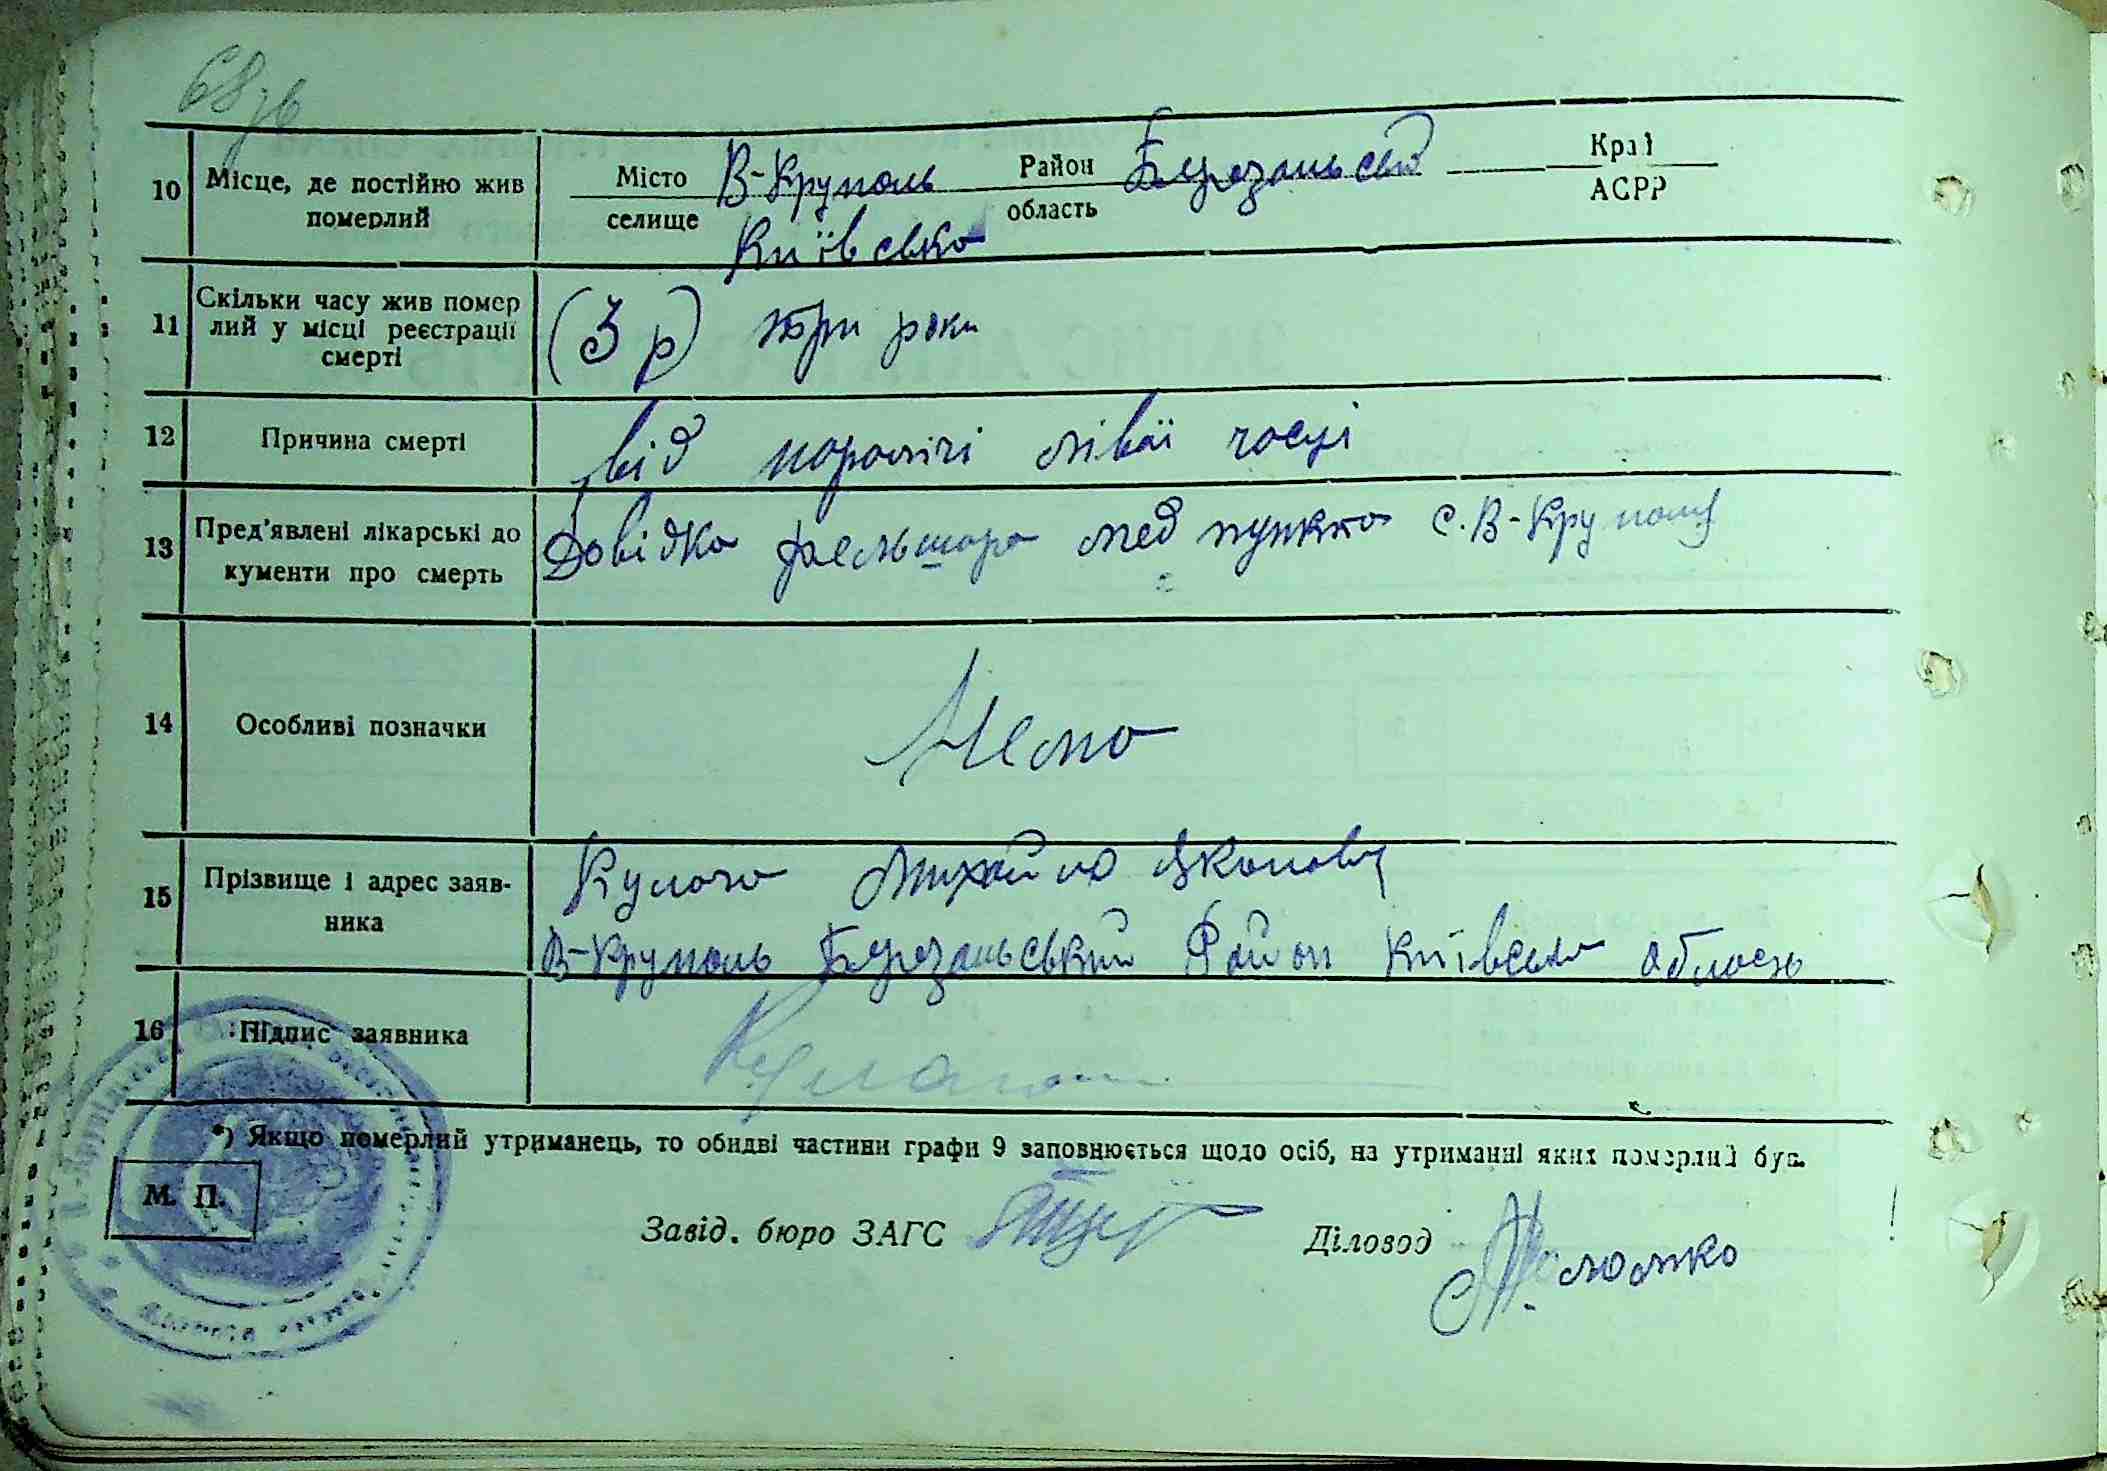 68зв
10 Місце, де постійно жив померлий
Місто селище В-Круполь Район область Березанський Край АСРР
Київсько
11 Скільки часу жив помер
лий у місці реєстрації
смерті
(3 р) три роки
12 Причина смерті
від поролічі лівої часті
13 Пред'явлені лікарські до
кументи про смерть
Довідка фельшара мед пункта с. В-Круполь
14 Особливі позначки
Нема
15 Прізвище і адрес заяв-
ника
Кулага Михайло Яковович
В-Круполь Березанський Район Київська область
16 Підпис заявника
Кулага
*) Якщо померлий утриманець, то обидві частини графи 9 заповнюється щодо осіб, на утриманні яких померлий був.
М. П.
Завід. бюро ЗАГС
Діловод